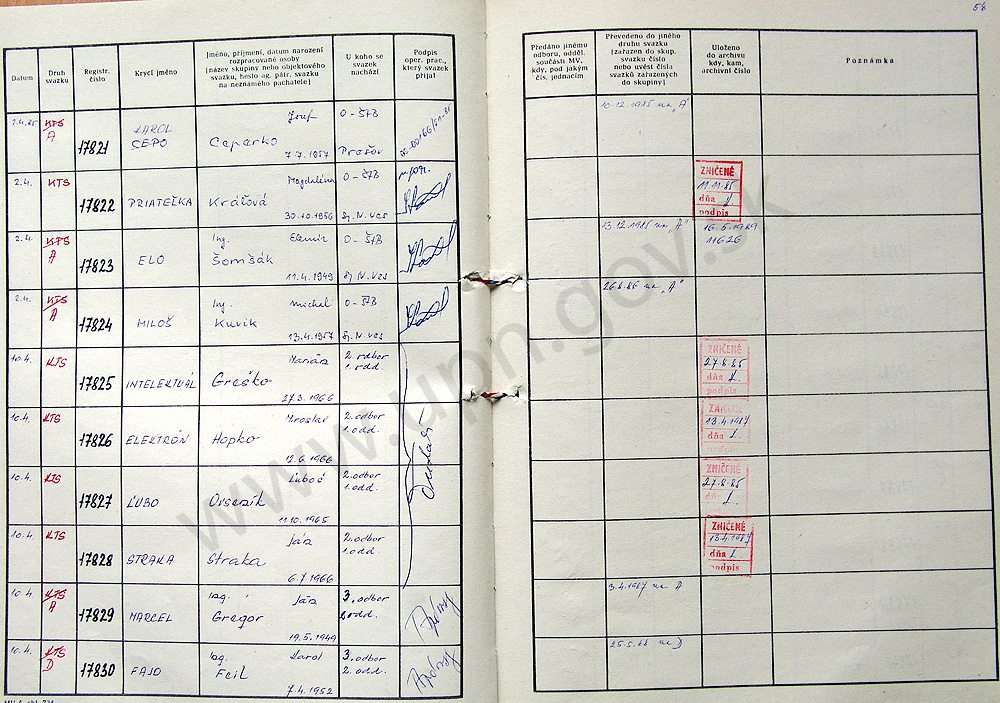 56
Datum
Druh svazku
Registr. číslo
Krycí jméno
Jméno, příjmení, datum narození
rozpracované osoby
(název skupiny nebo objektového
svazku, heslo ag. pátr. svazku
na neznámého pachatele)
U koho se
svazek
nachází
Podpis
oper. prac.,
který svazek
přijal
Předáno jinému
odboru, odděl.
součásti MV,
kdy, pod jakým
čís. jednacím
Převedeno do jiného
druhu svazku
(zařazen do skup.
svazku nebo uvést čísla
svazků zařazených
do skupiny)
Uloženo
do archivu
kdy, kam,
archivní číslo
Poznámka
2.4.85 KTS A 17821 KAROL ČEPO Jozef Caparko 7.7.1957 O-ŠtB Prešov
10.12.1985 na „A"
2.4. KTS 17822 PRIATEĽKA Magdaléna Kráľová 30.10.1956 O-ŠtB Sp. N. Ves
ZNIČENÉ 11.11.85 dňa podpis
2.4. KTS A 17823 ELO Ing. Elemír Šomšák 11.4.1949 O-ŠtB Sp. N. Ves
13.12.1985 na „A" 16.5.1989 11626
2.4. KTS A 17824 MILOŠ Ing. Michal Kuvik 13.4.1957 O-ŠtB Sp. N. Ves
26.8.86 na „A"
10.4. KTS 17825 INTELEKTUÁL Marián Greško 27.3.1966 2. odbor 1. odd.
ZNIČENÉ 27.8.85 dňa podpis
10.4. KTS 17826 ELEKTRÓN Miroslav Hopko 12.6.1966 2. odbor 1. odd.
ZNIČENÉ 13.4.1987 dňa
10.4. KTS 17827 ĽUBO Ľuboš 11.10.1965 2. odbor 1. odd.
ZNIČENÉ 27.8.85 dňa
10.4. KTS 17828 STRAKA Ján Straka 6.7.1966 2. odbor 1. odd.
ZNIČENÉ 13.4.1987 dňa podpis
10.4. KTS A 17829 MARCEL Ing. Ján Gregor 19.5.1949 3. odbor 2. odd.
3.4.1987 na A
10.4. KTS D 17830 FAJO Ing. Karol Feil 7.4.1952 3. odbor 2. odd.
25.5.88 na D
www.upn.gov.sk